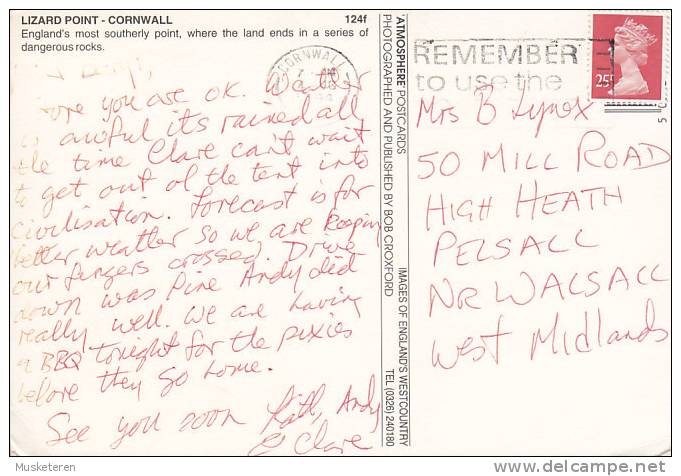 LIZARD POINT - CORNWALL 124f
England's most southerly point, where the land ends in a series of
dangerous rocks.
you are ok. Weather
is awful its rained all
the time Clare can't wait
to get out of the tent into
civilisation. Forecast is for
better weather so we are keeping
our fingers crossed. Drive
down was fine Andy did
really well. We are having
a BBQ tonight for the pixies
before they go home.
See you soon Andy
& Clare
'ATMOSPHERE' POSTCARDS
PHOTOGRAPHED AND PUBLISHED BY BOB CROXFORD
IMAGES OF ENGLAND'S WESTCOUNTRY
TEL (0326) 240180
CORNWALL
REMEMBER
to use the
25
Mrs B Lynex
50 MILL ROAD
HIGH HEATH
PELSALL
NR WALSALL
West Midlands
Musketeren
delcampe.net